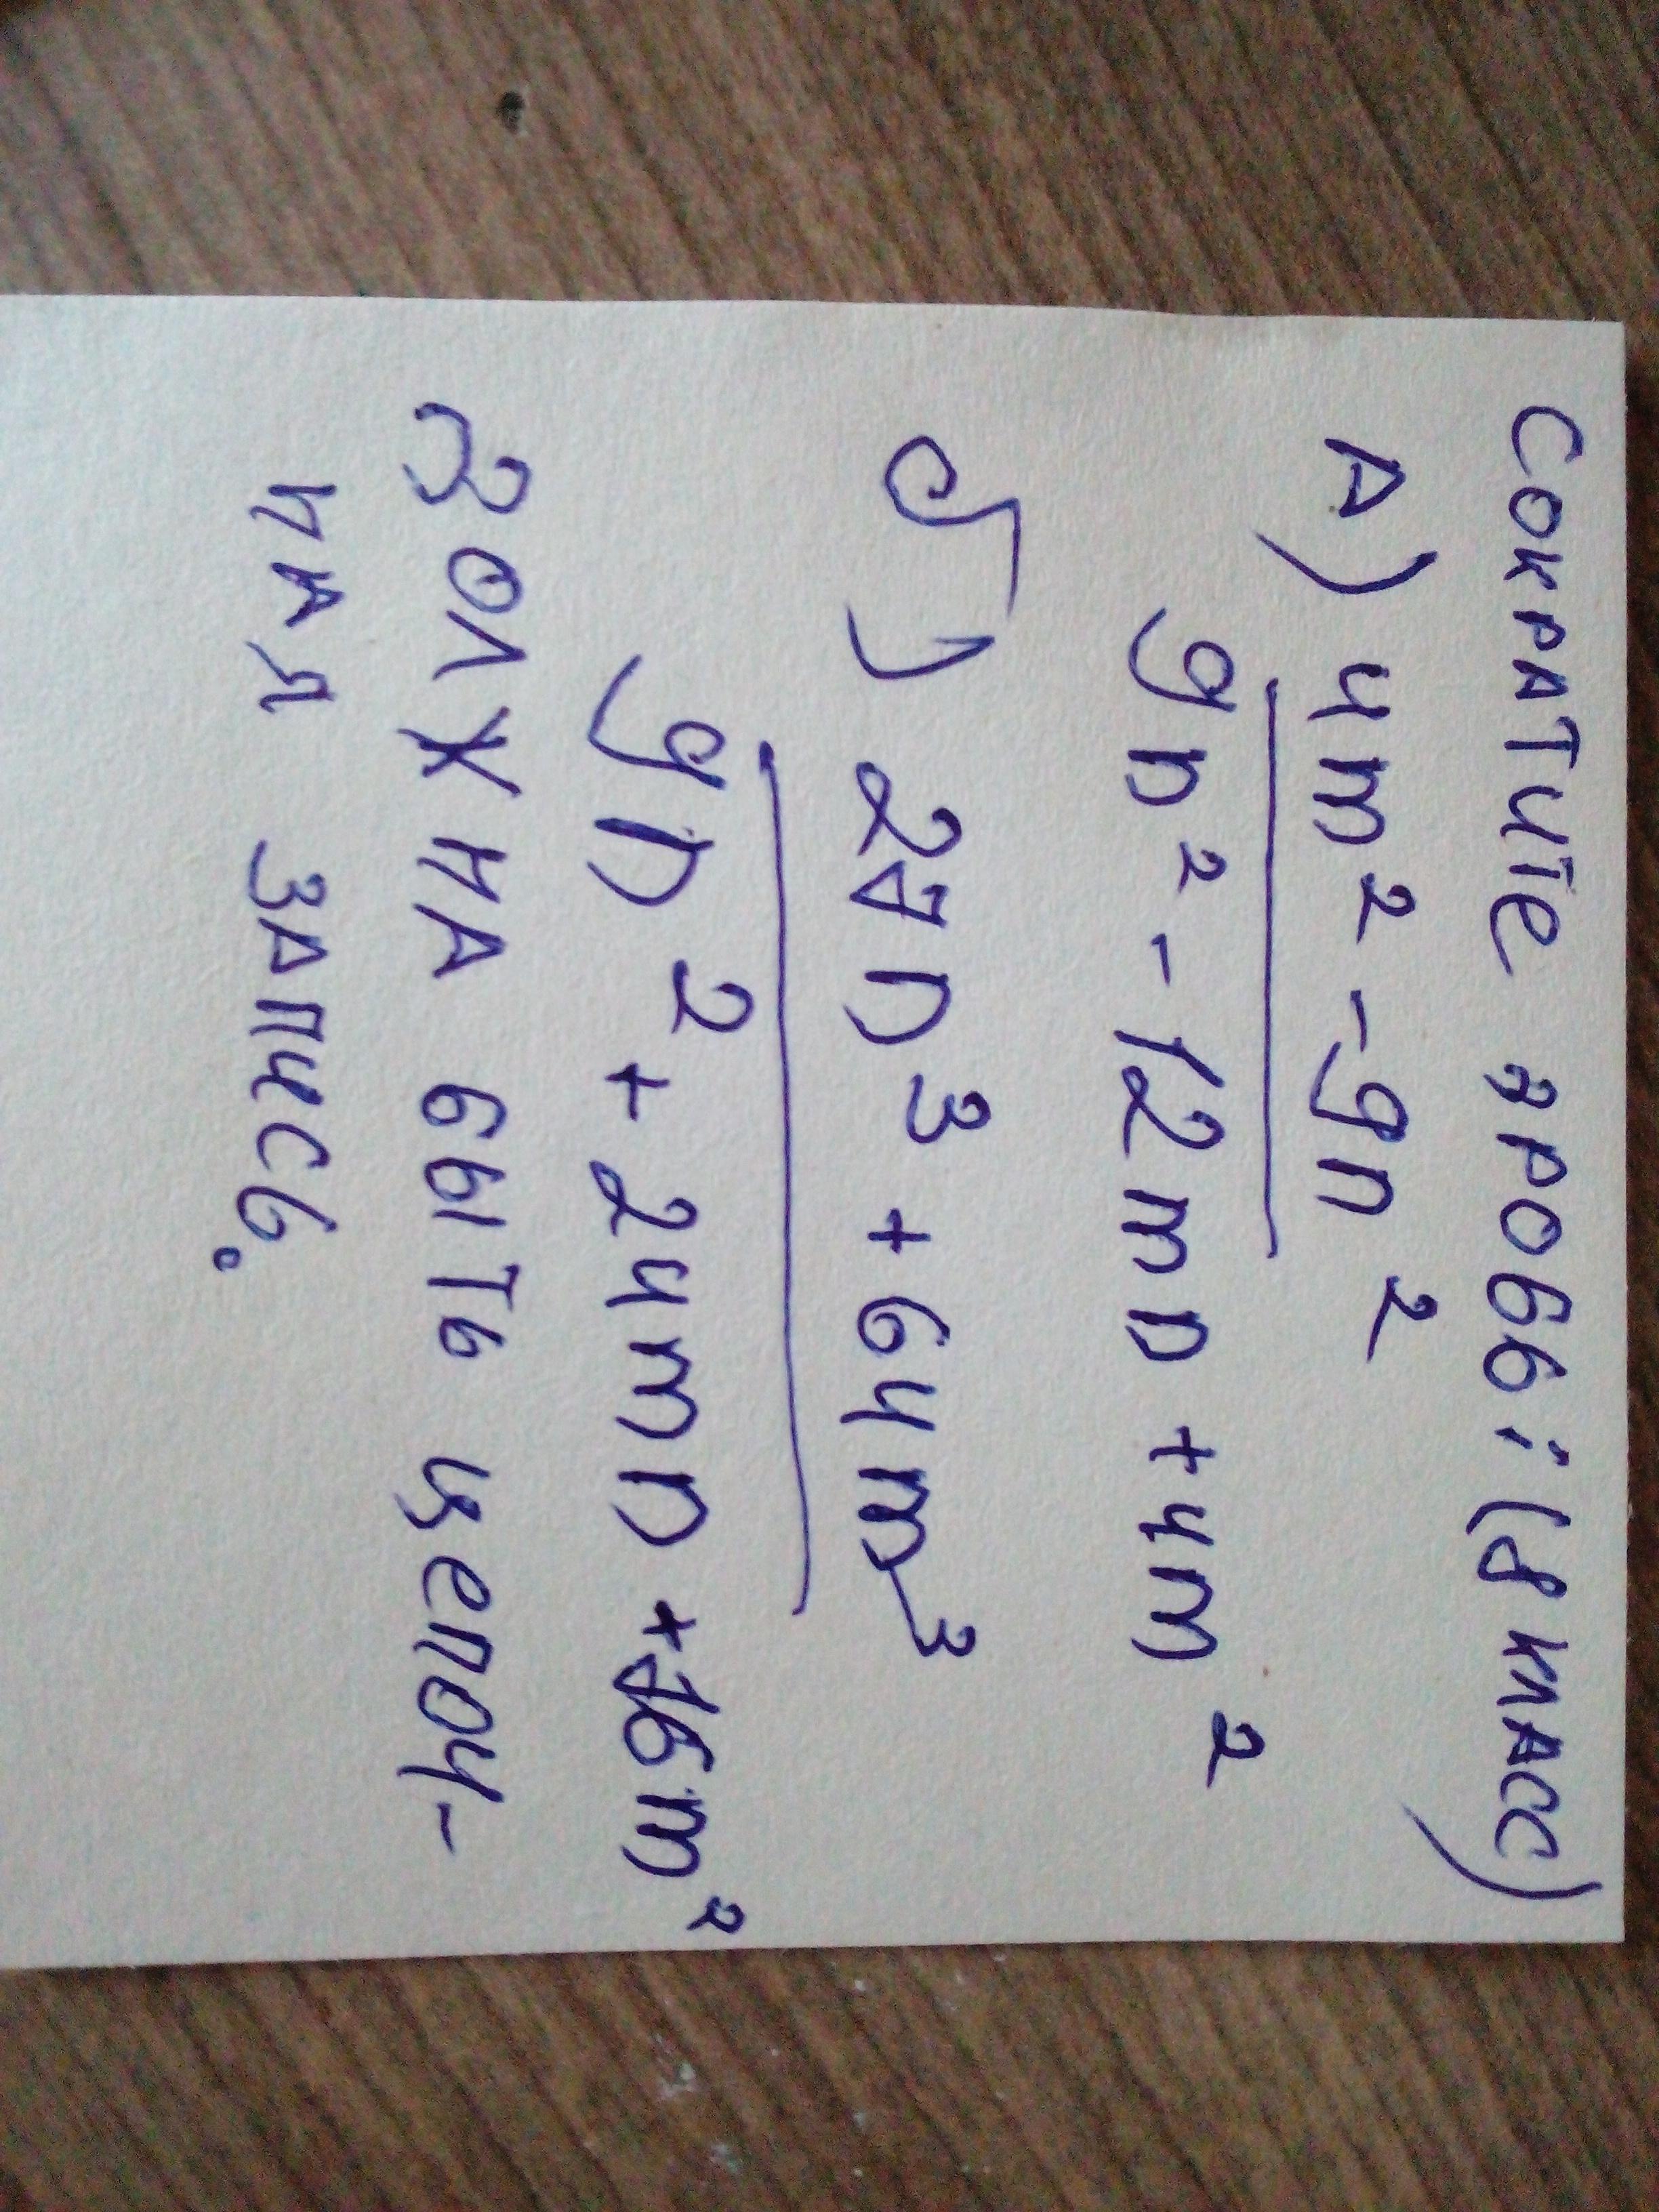 Сократите дробь: (8 класс)
А) 4m² - 9n²
9n² - 12mn + 4m²
б) 27n³ + 64m³
9n² + 24mn + 16m²
Должна быть цепоч-
ная запись.